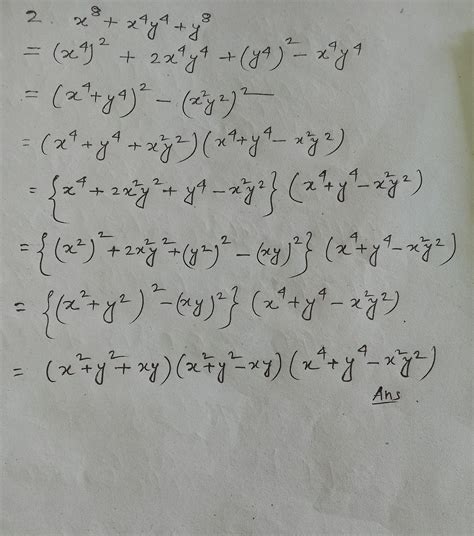 2. x⁸ + x⁴y⁴ + y⁸
= (x⁴)² + 2x⁴y⁴ + (y⁴)² - x⁴y⁴
= (x⁴+y⁴)² - (x²y²)²
= (x⁴+y⁴+x²y²)(x⁴+y⁴- x²y²)
= {x⁴+2x²y²+y⁴-x²y²} (x⁴+y⁴-x²y²)
= {(x²)²+2x²y²+(y²)²-(xy)²} (x⁴+y⁴-x²y²)
= {(x²+y²)²-(xy)²} (x⁴+y⁴-x²y²)
= (x²+y²+xy)(x²+y²-xy)(x⁴+y⁴-x²y²)
Ans